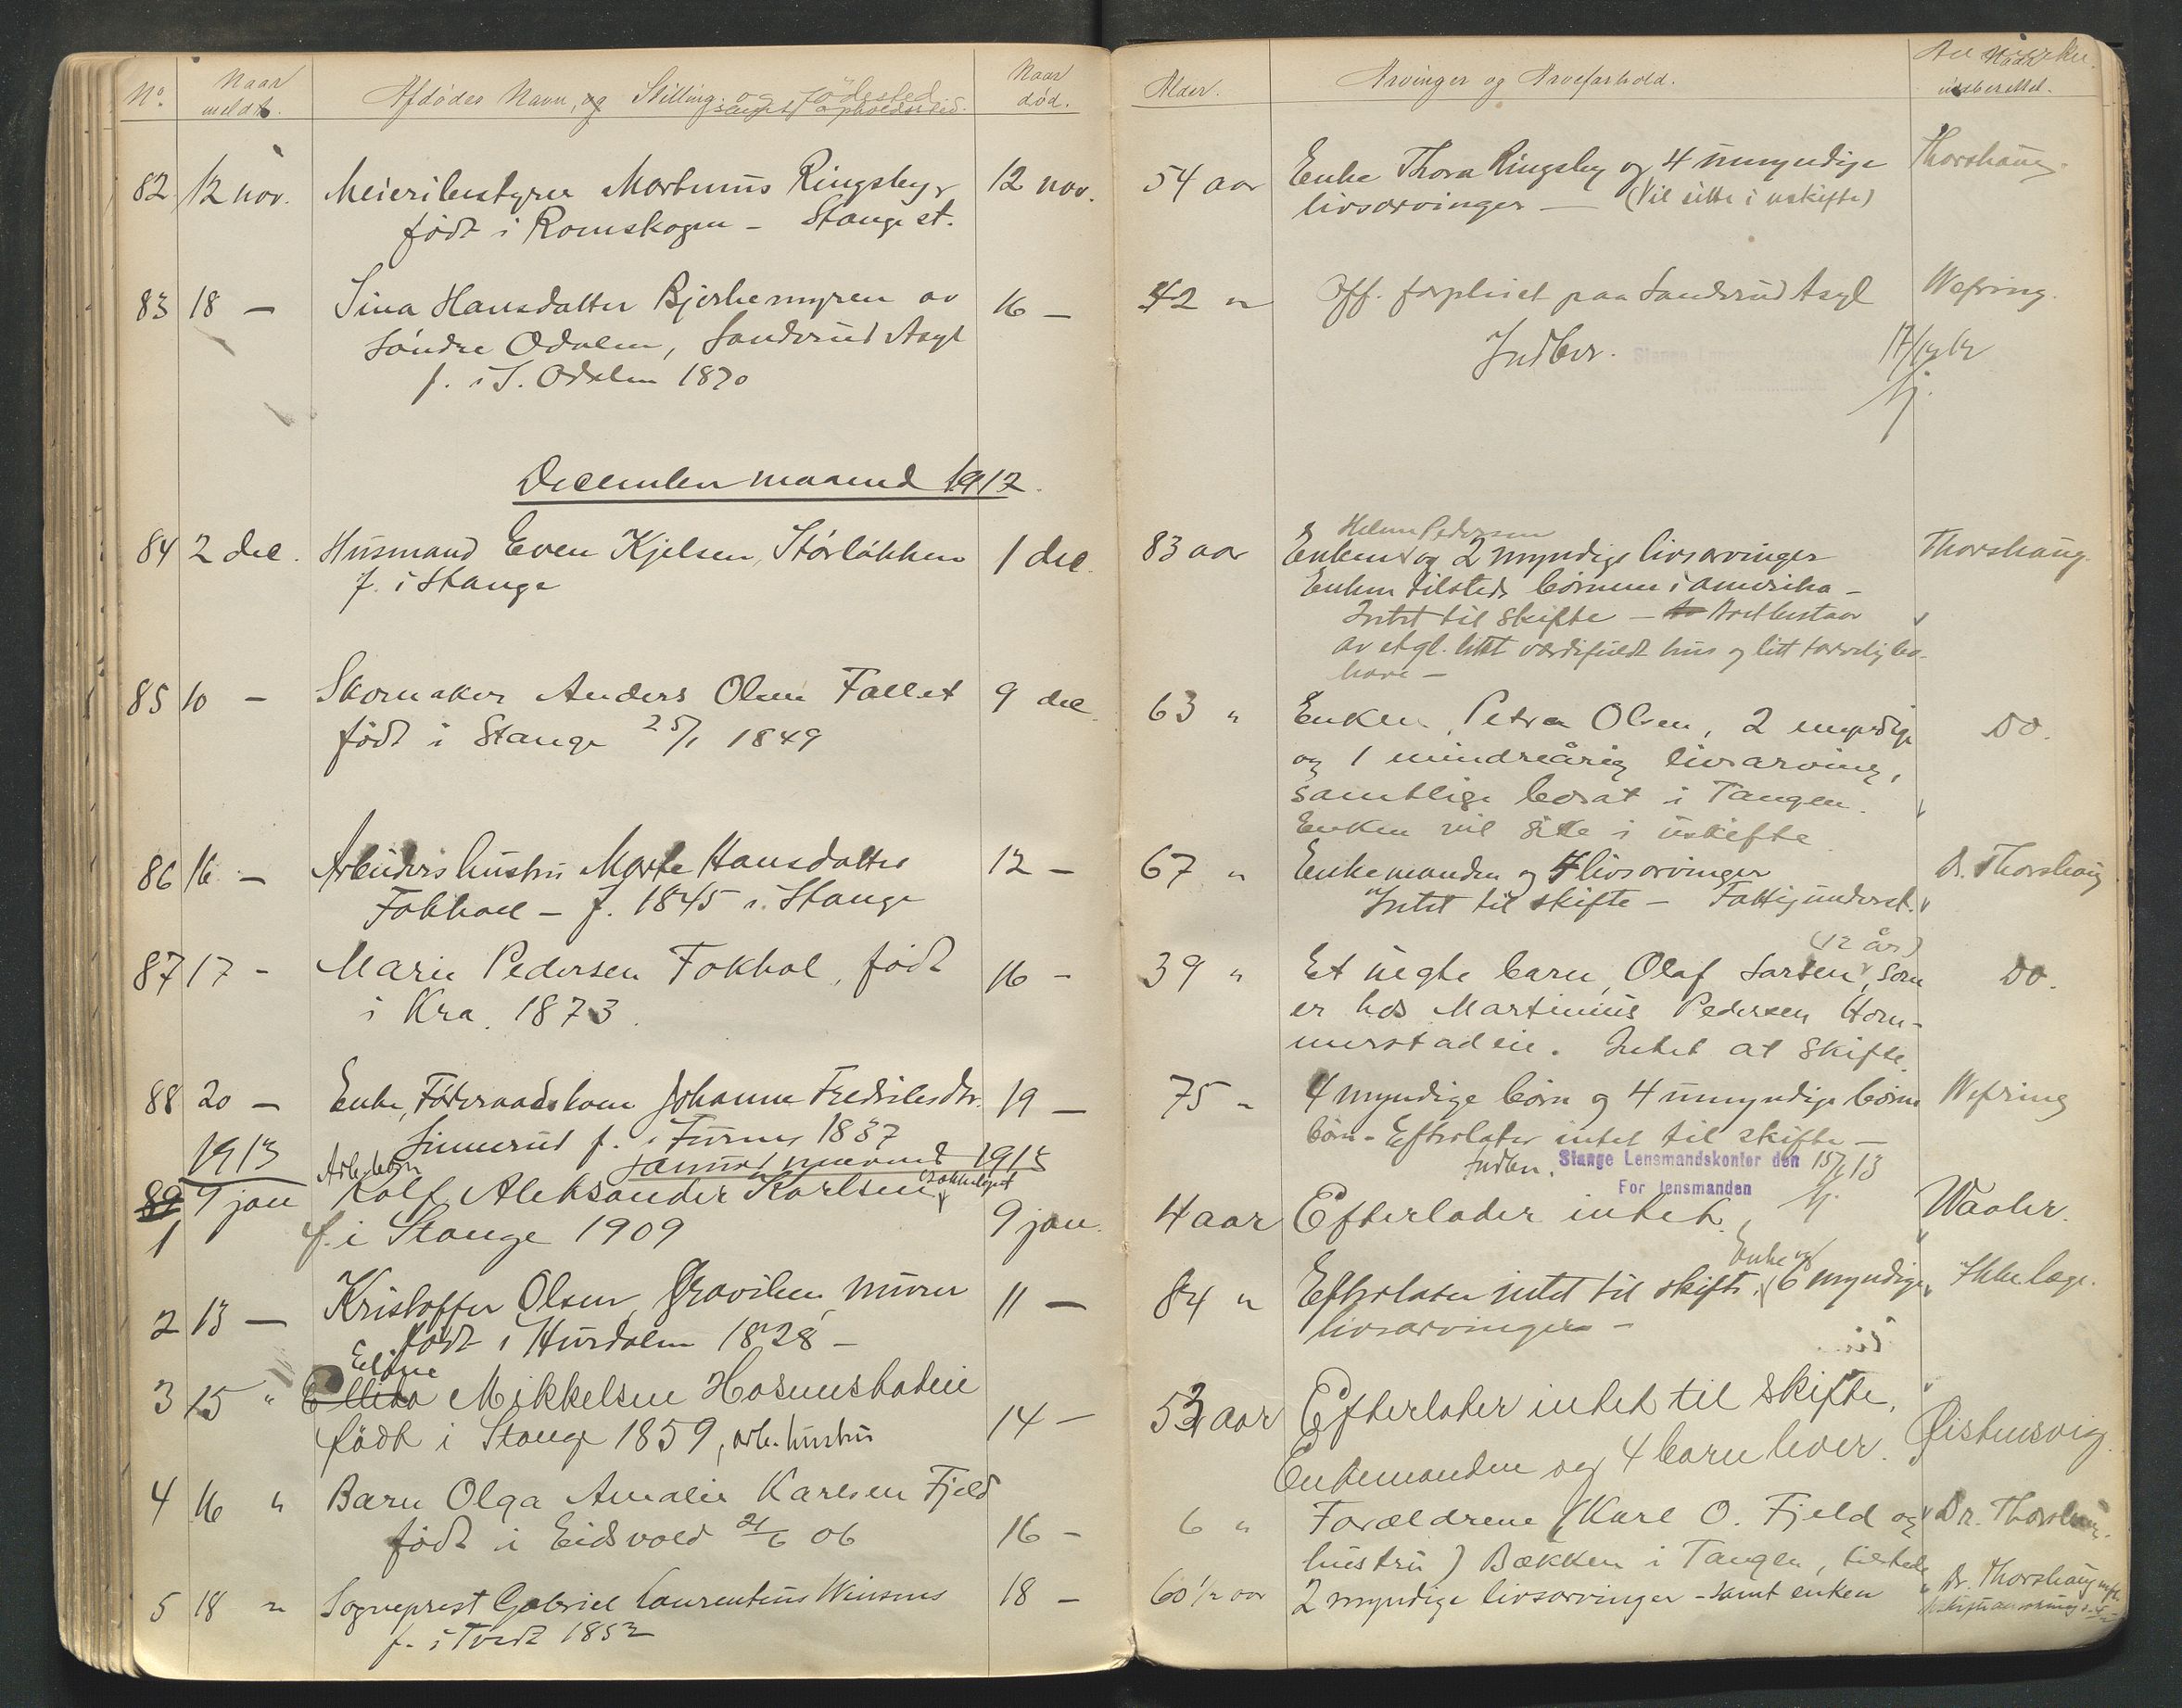 No. Naar meldt. Afdødes Navn, og Stilling, og Fødested Naar død.
82 12 nov. Meieribestyrer Martinius Ringsby, 12 nov.
født i Romskogen - Stange st.
83 18 — Sina Hansdatter Bjerkemyren av 16 —
Søndre Odalen, Sanderud Asyl
f. i S. Odalen 1870
December maaned 1912.
84 2 dec. Husmand Even Kjelsen, Størløkken 1 dec.
f. i Stange
85 10 - Skomaker Anders Olsen Fallet 9 dec.
født i Stange 25/1 1849
86 16 — Arbeiders hustru Marte Hansdatter 12 —
Fokhol - f. 1845 i Stange
87 17 - Marie Pedersen Fokhol, født 16 -
i Kra. 1873.
88 20 — Enke, Føderaadskone Johanne Fredriksdtr. 19 —
Sinnerud f. i Furnes 1837
1913 Januar maaned 1913
89 9 jan Arb. barn Rolf Aleksander Karlsen 9 jan.
1 f. i Stange 1909
2 13 — Kristoffer Olsen Graviken, murer 11 —
født i Hurdalen 1828 —
Eline
3 15 " Mikkelsen Hosmestadeie 14 —
født i Stange 1859, arb. hustru
4 16 " Barn Olga Amalie Karlsen Fjeld
født i Eidsvold 21/6 06 16 -
5 18 " Sogneprest Gabriel Laurentius Winsnes 18 —
f. i Tvedt 1852
Alder. Arvinger og Arveforhold. indberettet.
54 aar Enke Thora Ringsby og 4 umyndige Thorshaug.
livsarvinger — (Vil sitte i uskifte)
42 " Off. forpleiet paa Sanderud Asyl Wefring.
Indber. 17/12 12
Helene Pedersen
83 aar Enken og 2 myndige livsarvinger Thorshaug.
Enken tilsteds børnene i Amerika -
Intet til skifte - Aret bestaar
av et gl. litet værdifuldt hus og litt tarvelig bo-
have —
63 " Enken, Petra Olsen, 2 myndige Do.
og 1 mindreårig livsarving,
samtlige bosat i Tangen.
Enken vil sitte i uskifte
67 " Enkemanden og 4 livsarvinger Dr. Thorshaug
Intet til skifte - Fattigunderst.
(12 år)
39 " Et uegte barn, Olaf Larsen, som Do.
er hos Martinius Pedersen Hom-
merstadeie. Intet at skifte.
75 " 4 myndige børn og 4 umyndige børne Wefring
børn - Efterlater intet til skifte —
Indber. Stange Lensmandskontor den 15/1 13
For lensmanden
4 aar Efterlader intet. Waaler.
Enke og
84 " Efterlater intet til skifte. 6 myndige Ikke læge.
livsarvinger —
53 aar Efterlater intet til skifte.
Enkemanden og 4 barn lever. Øistensvig.
6 " Forældrene (Karl O. Fjeld og Dr. Thorshaug.
hustru) Bækken i Tangen, tilstede
60 1/2 aar 2 myndige livsarvinger - samt enken Dr. Thorshaug